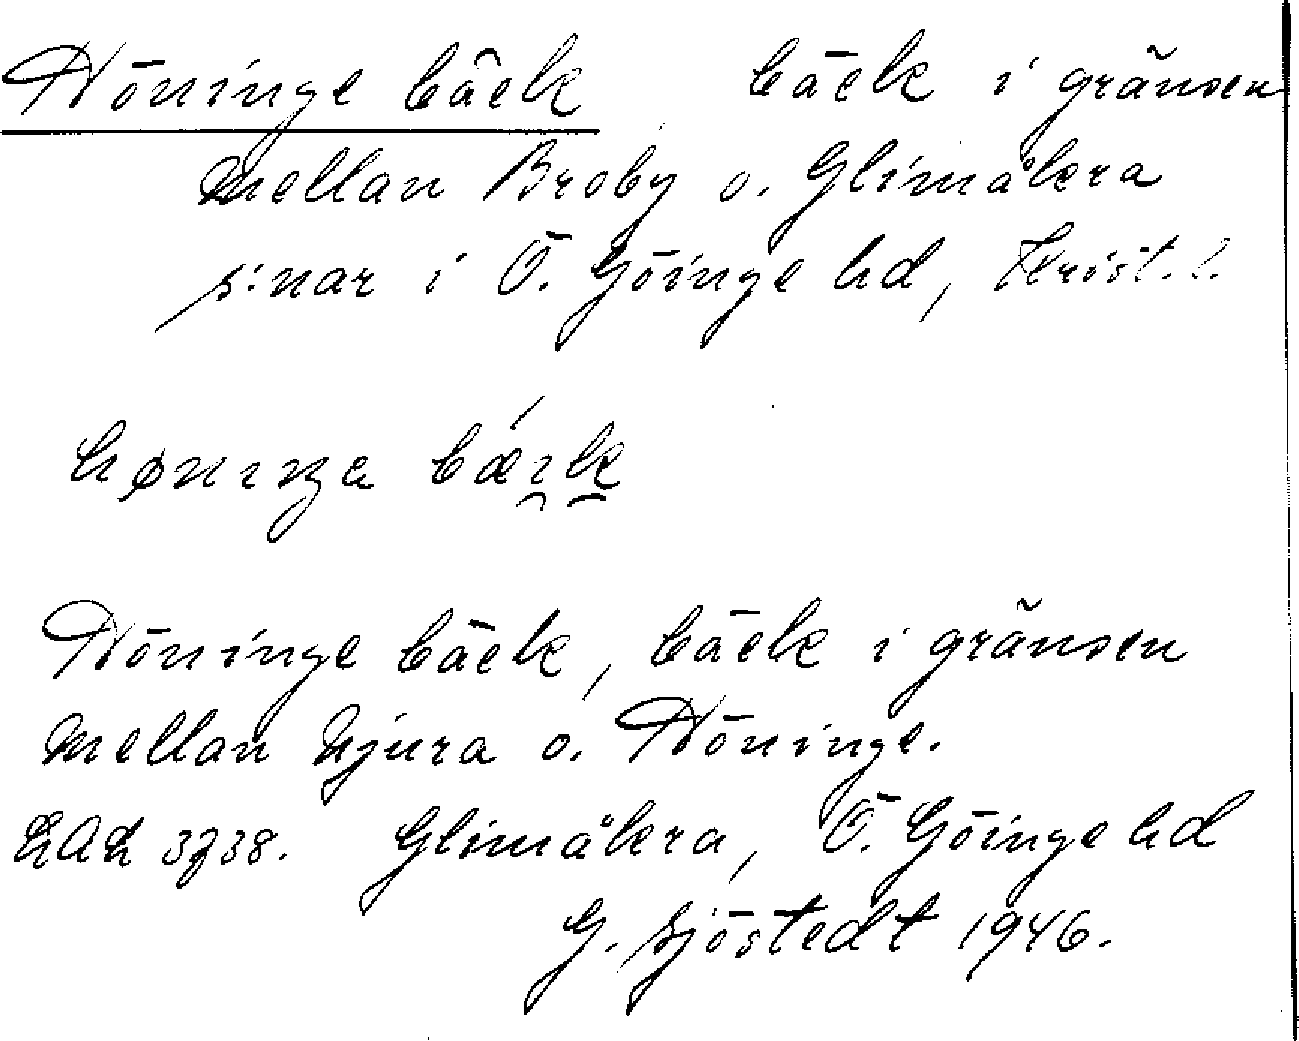 Höninge bäck bäck i gränsen
mellan Broby o. Glimåkra
s:nar i Ö. Göinge hd, Krist. l.
hønıŋa bæık
Höninge bäck, bäck i gränsen
mellan Njura o. Höninge.
LAL 3738. Glimåkra, Ö. Göinge hd
G. Sjöstedt 1946.